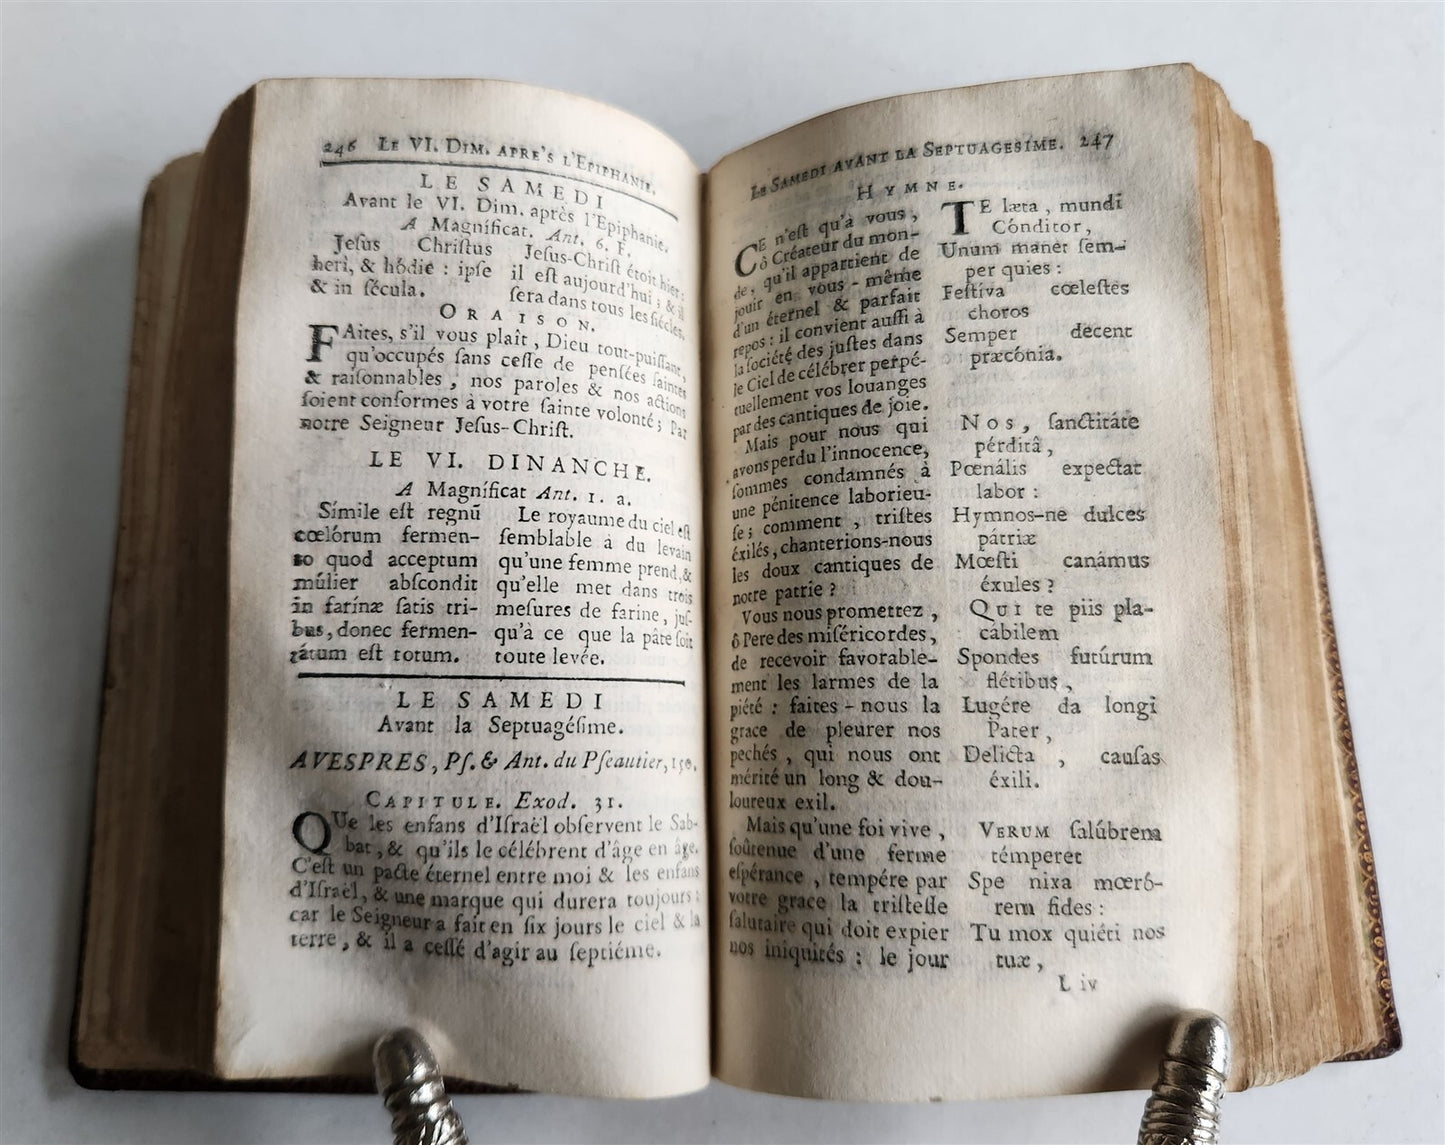 246 LE VI. DIM. APRE'S L'EPIPHANIE.
LE SAMEDI
Avant le VI. Dim. après l'Epiphanie.
A Magníficat. Ant. 6. F.
Jeſus Chriſtus
heri, & hódie : ipſe
& in ſécula.
Jeſus-Chriſt étoit hier ;
il eſt aujourd'hui ; & il
ſera dans tous les ſiécles.
ORAISON.
FAites, s'il vous plaît, Dieu tout-puiſſant,
qu'occupés ſans ceſſe de penſées ſaintes
& raiſonnables, nos paroles & nos actions
ſoient conformes à votre ſainte volonté ; Par
notre Seigneur Jeſus-Chriſt.
LE VI. DINANCHE.
A Magníficat Ant. 1. a.
Símile eſt regnū
cœlórum fermen-
to quod acceptum
múlier abſcondit
in farínæ ſatis tri-
bus, donec fermen-
tátum eſt totum.
Le royaume du ciel eſt
ſemblable à du levain
qu'une femme prend, &
qu'elle met dans trois
meſures de farine, juſ-
qu'à ce que la pâte ſoit
toute levée.
LE SAMEDI
Avant la Septuagéſime.
A VESPRES, Pſ. & Ant. du Pſeautier, 150.
CAPITULE. Exod. 31.
QUe les enfans d'Iſraël obſervent le Sab-
bat, & qu'ils le célébrent d'âge en âge.
C'eſt un pacte éternel entre moi & les enfans
d'Iſraël, & une marque qui durera toujours :
car le Seigneur a fait en ſix jours le ciel & la
terre, & il a ceſſé d'agir au ſeptiéme.
LE SAMEDI AVANT LA SEPTUAGESIME. 247
HYMNE.
CE n'eſt qu'à vous,
ô Créateur du mon-
de, qu'il appartient de
jouir en vous-même
d'un éternel & parfait
repos : il convient auſſi à
la ſociété des juſtes dans
le Ciel de célébrer perpé-
tuellement vos louanges
par des cantiques de joie.
Mais pour nous qui
avons perdu l'innocence,
ſommes condamnés à
une pénitence laborieu-
ſe ; comment, triſtes
éxilés, chanterions-nous
les doux cantiques de
notre patrie ?
Vous nous promettez,
ô Pere des miſéricordes,
de recevoir favorable-
ment les larmes de la
piété : faites-nous la
grace de pleurer nos
pechés, qui nous ont
mérité un long & dou-
loureux exil.
Mais qu'une foi vive,
ſoûtenue d'une ferme
eſpérance, tempére par
votre grace la triſteſſe
ſalutaire qui doit expier
nos iniquités : le jour
TE læta, mundi
Cónditor,
Unum manet ſem-
per quies :
Feſtíva cœleſtes
choros
Semper decent
præcónia.
Nos, ſanctitáte
pérditâ,
Pœnális expectat
labor :
Hymnos-ne dulces
pátriæ
Mœſti canámus
éxules ?
Qui te piis pla-
cábilem
Spondes futúrum
flétibus,
Lugére da longi
Pater,
Delicta, cauſas
éxili.
VERUM ſalúbrem
témperet
Spe nixa mœró-
rem fides :
Tu mox quiéti nos
tuæ,
L iv